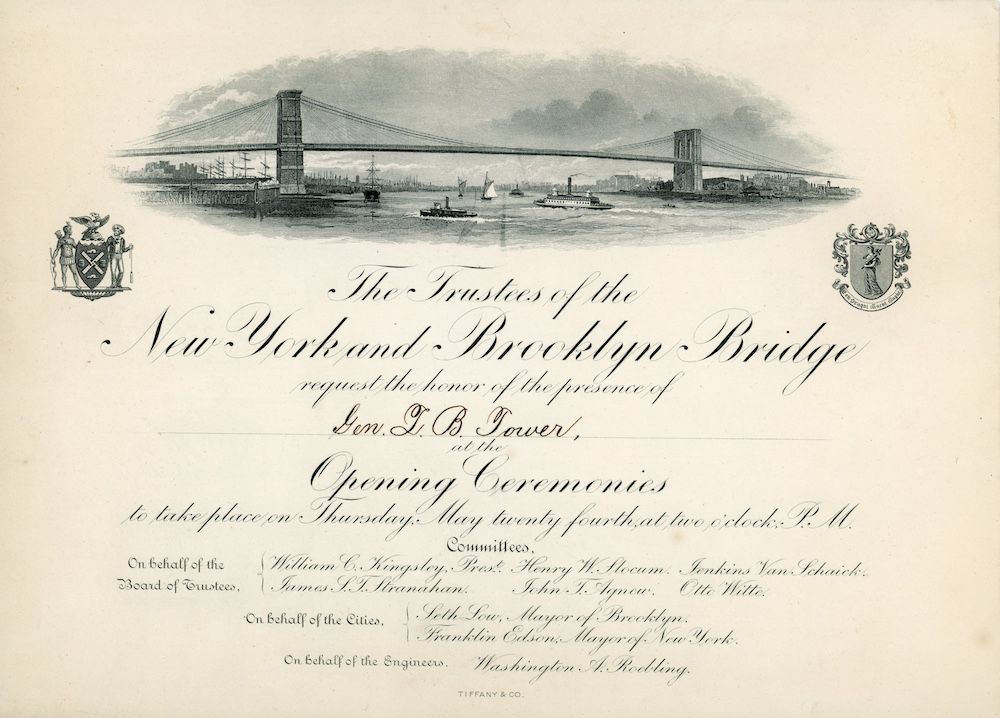 The Trustees of the
New York and Brooklyn Bridge
request the honor of the presence of
Gen. Z. B. Tower,
at the
Opening Ceremonies
to take place on Thursday, May twenty fourth, at two o'clock, P. M.
Committees,
On behalf of the Board of Trustees,
William C. Kingsley, Prest. Henry W. Slocum. Jenkins Van Schaick.
James S. T. Stranahan. John T. Agnew. Otto Witte.
On behalf of the Cities,
Seth Low, Mayor of Brooklyn.
Franklin Edson, Mayor of New York.
On behalf of the Engineers. Washington A. Roebling.
TIFFANY & CO.